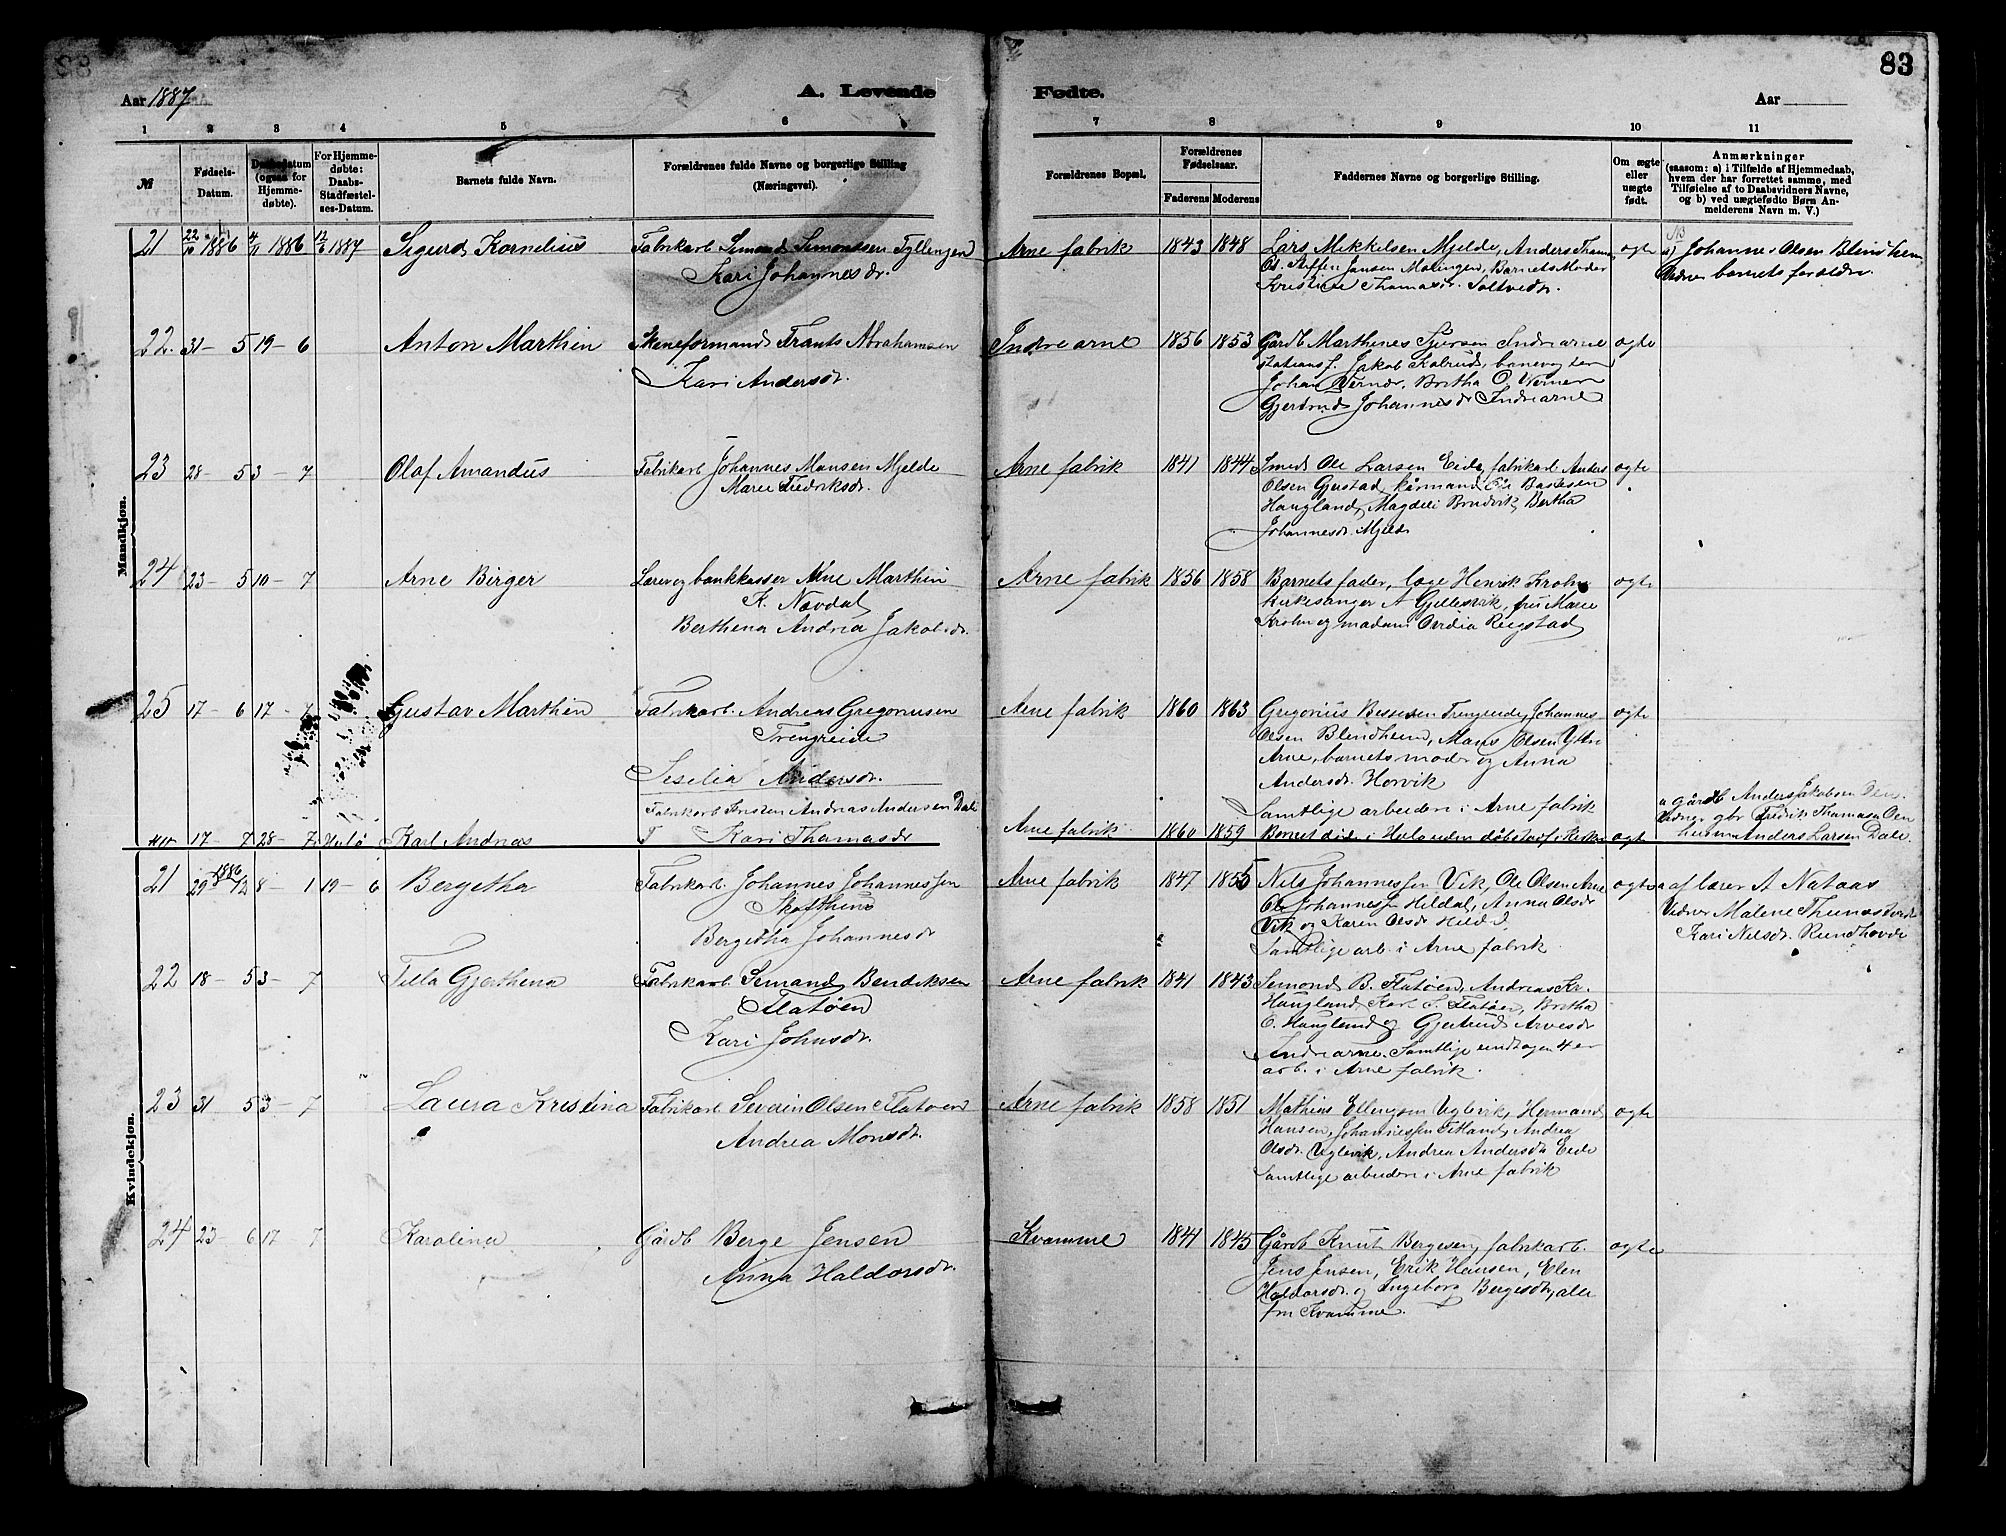 83
Aar 1887
A. Levende Fødte.
Aar
1 2 3 4 5 6 7 8 9 10 11
№
Fødsels-Datum.
Daabsdatum (ogsaa for Hjemme-døbte).
For Hjemme-døbte: Daabs-Stadfæstel-ses-Datum.
Barnets fulde Navn.
Forældrenes fulde Navne og borgerlige Stilling (Næringsvei).
Forældrenes Bopæl.
Forældrenes Fødselsaar.
Faderens Moderens
Faddernes Navne og borgerlige Stilling.
Om ægte eller uægte født.
Anmærkninger
(saasom: a) i Tilfælde af Hjemmedaab,
hvem der har forrettet samme, med
Tilføielse af to Daabsvidners Navne,
og b) ved uægtefødte Børn An-
melderens Navn m. V.)
Mandkjøn.
21 22/10 1886 4/11 1886 12/6 1887 Sigurd Kornelius
Fabrikarb Simond Simondsen Tyllingen
Kari Johannesdr.
Arne fabrik 1843 1848
Lars Mikkelsen Mjelde, Anders Thomas
Steffen Jansen Molingen, Barnets Moder
Kristine Thomasdr.
ægte
a) Johannes Olsen Blindhem
Vidner barnets forældre.
22 31 - 5 19 - 6 Anton Marthin
Frants Abrahamsen
Kari Andersdr.
Indre arne 1856 1853
Gårdb Marthenes Sjursen Indre arne
Jakob Kalrud, banevogter
Johan Werner, Bertha O. Werner
Gjertrud Johannesdr Indre arne
ægte
23 28 - 5 3 - 7 Olaf Amandus
Fabrikarb Johannes Monsen Mjelde
Marie Fredriksdr.
Arne fabrik 1841 1844
Smed Ole Larsen Eide, fabrikarb Anders
Olsen Gjestad, Ole Bastesen
Haugland, Magdeli Brudvik, Bertha
Johannesdr. Mjelde
ægte
24 23 - 5 10 - 7 Arne Birger
Lærer og bankkasser Arne Marthin
K. Nævdal
Berthena Andrea Jakobsdr.
Arne fabrik 1856 1858
Barnets fader, læge Henrik Krohn
kirkesanger A Gjellesvik, fru Marie
Krohn og madam Ovidia Reigstad
ægte
25 17 - 6 17 - 7 Gustav Marthin
Fabrikarb. Andreas Gregoriusen
Trengreide
Sesilia Andersdr.
Arne fabrik 1860 1863
Gregorius Bessesen Trengreide, Johannes
Olsen Blindheim, Mons Olsen Ytre
Arne, barnets moder og Anna
Andersdr. Horvik
Samtlige arbeidere i Arne fabrik
ægte
17 - 7 28 - 7 Karl Andreas
Fabrikarb Kristen Andreas Andersen Dale
Kari Thomasdr
Arne fabrik 1860 1859
Barnet døde
ægte
a gårdb Anders Jakobsen
Vidner gbr Fredrik Thomasen
Anders Larsen Dale.
Kvindekjøn.
21 29 - 12 1886 8 - 1 19 - 6 Bergetha
Fabrikarb. Johannes Johannessen
Skafthun
Bergitha Johannesdr
Arne fabrik 1847 1855
Nils Johannessen Vik, Ole Olsen Arne
Ole Johannessen Hildal, Anna Olsdr
Vik og Karen Olsdr Hildal.
Samtlige arb. i Arne fabrik.
ægte
a af lærer A Nataas
Vidner Malene Thunestvedt
Kari Nilsdr. Rundhovde
22 18 - 5 3 - 7 Tilla Gjerthena
Fabrikarb. Simond Bendiksen
Flatøen
Kari Johnsdr.
Arne fabrik 1841 1843
Semond B. Flatøen, Andreas Kr.
Haugland, Karl S. Flatøen, Bertha
O. Haugland og Gjertrud Arvesdr
Indre arne. Samtlige undtagen 4 er
arb. i Arne fabrik.
ægte
23 31 - 5 3 - 7 Laura Kristina
Fabrikarb Severin Olsen Flatøen
Andrea Monsdr.
Arne fabrik 1858 1851
Mathias Ellingsen Uglevik, Herman
Hansen, Johannessen Tetland, Andrea
Olsdr. Uglevik, Andrea Andersdr Eide
Samtlige arbeidere i Arne fabrik
ægte
24 23 - 6 17 - 7 Karolina
Gårdb Berge Jensen
Anna Haldorsdr.
Kvamme 1841 1845
Gårdb Knut Bergesen, fabrikarb.
Jens Jensen, Erik Hansen, Elen
Haldorsdr. og Ingeborg Bergesdtr, alle
fra Kvamme.
ægte